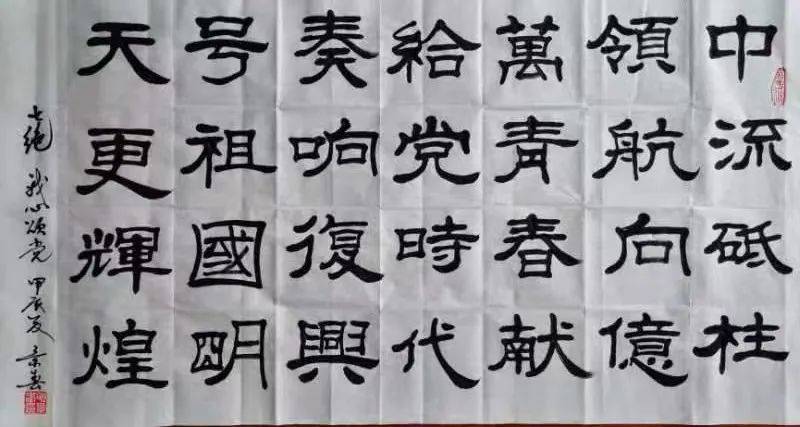 中流砥柱
領航向億
萬青春献
給党時代
奏响復興
号祖國明
天更輝煌
七绝 我心颂党 甲辰夏 景春